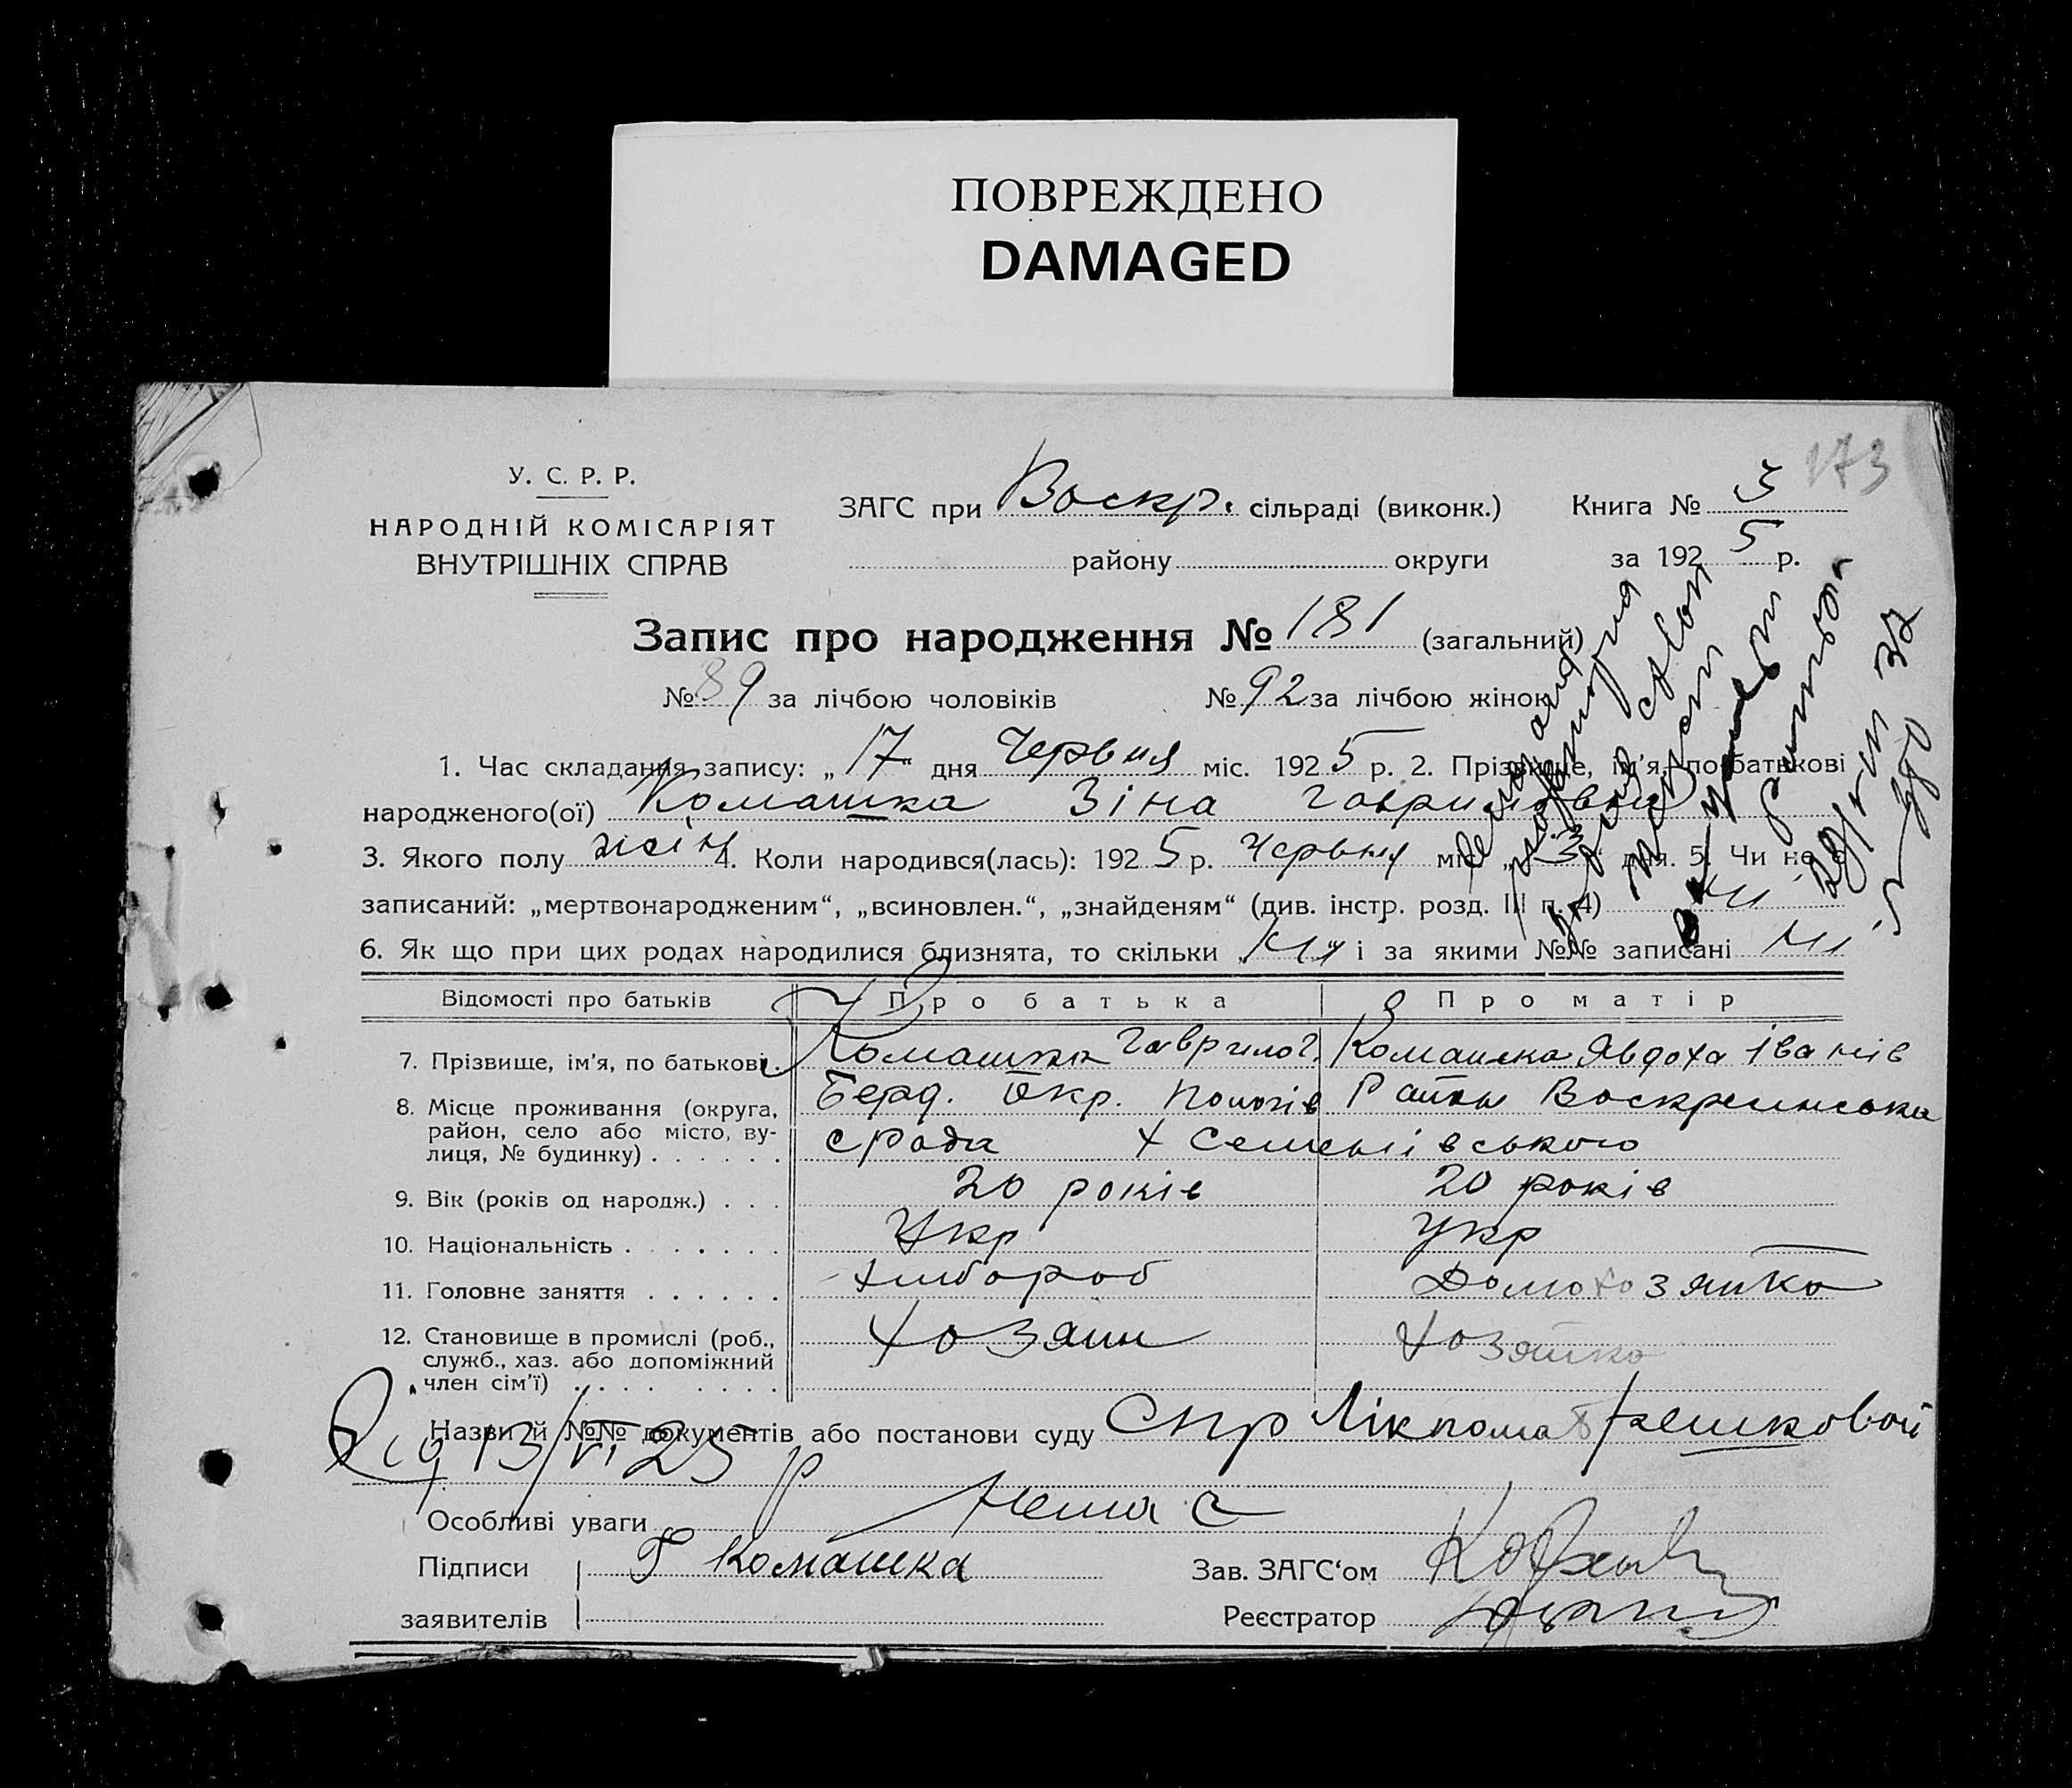 ПОВРЕЖДЕНО
DAMAGED
173
У. С. Р. Р.
НАРОДНІЙ КОМІСАРІЯТ
ВНУТРІШНІХ СПРАВ
ЗАГС при Воскр. сільраді (виконк.) Книга № 3
району округи за 1925 р.
Запис про народження № 181 (загальний)
№ 89 за лічбою чоловіків № 92 за лічбою жінок
1. Час складання запису: „17“ дня Червня міс. 1925 р. 2. Прізвище, ім'я, по батькові
народженого(ої) Комашка Зіна Гавриловна
3. Якого полу жін 4. Коли народився(лась): 1925 р. Червня міс. „3“ дня. 5. Чи не є
записаний: „мертвонародженим“, „всиновлен.“, „знайденям“ (див. інстр. розд. III п. 4) ні
6. Як що при цих родах народилися близнята, то скільки „ні“ і за якими №№ записані ні
Відомості про батьків Про батька Про матір
7. Прізвище, ім'я, по батькові. Комашка Гаврило Г. Комашка Явдоха Іванів
8. Місце проживання (округа, район, село або місто, вулиця, № будинку) . . . . . . Берд. Окр. Пологів Району Воскресинська
срада х Семенівського
9. Вік (років од народж.) . . . 20 років 20 років
10. Національність . . . . . . . Укр Укр
11. Головне заняття . . . . . . хлібороб Домохозяйка
12. Становище в промислі (роб., служб., хаз. або допоміжний член сім'ї) . . . . . . . . Хозяин Хозяйка
Назви й №№ документів або постанови суду Спр Лікпома
13/VI 25 р
Особливі уваги Немає
Підписи Г Комашка Зав. ЗАГС'ом
заявителів Реєстратор